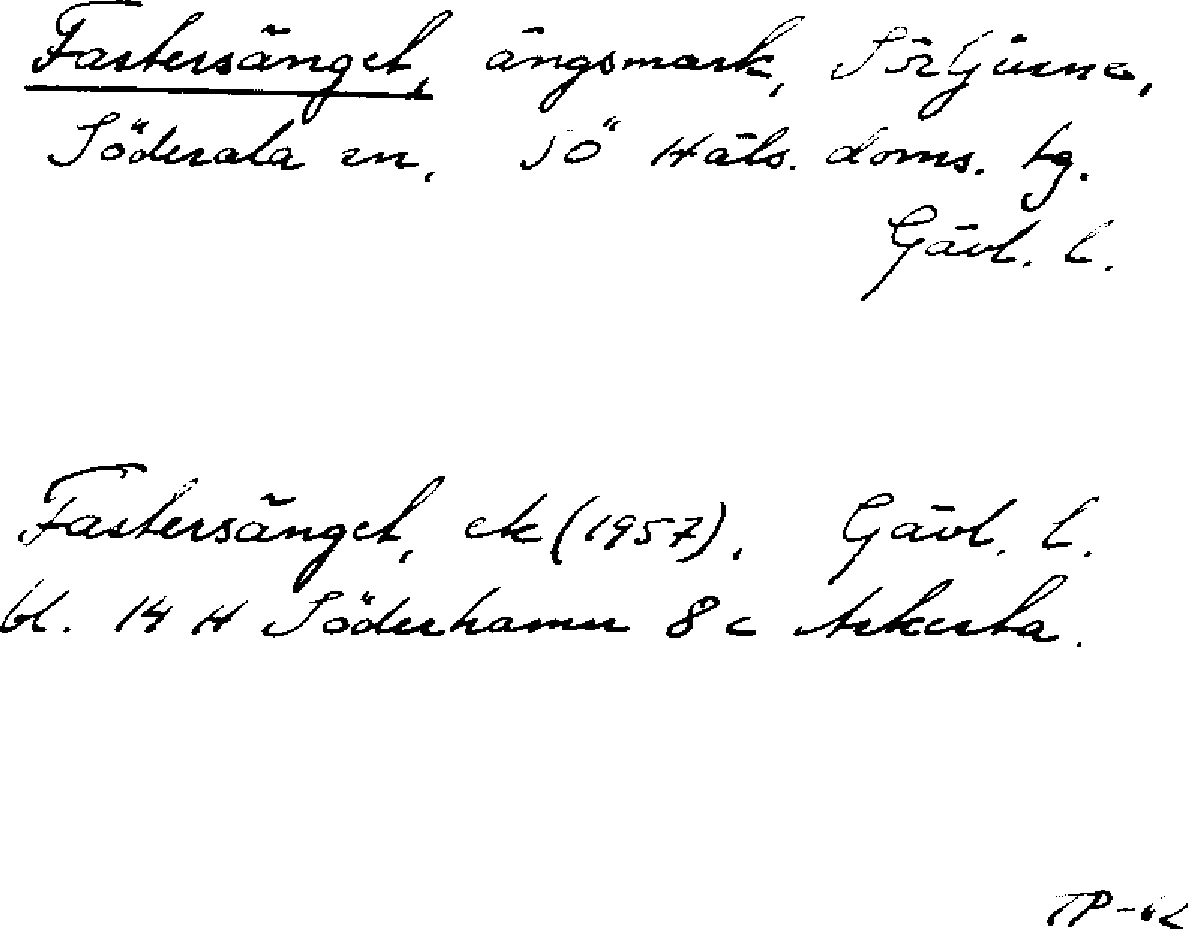 Fastersänget, ängsmark, Sörljusne,
Söderala sn, SÖ Häls. doms. tg.
Gävl. l.
Fastersänget, ek (1957). Gävl. l.
bl. 14 H Söderhamn 8 c Askesta.
TP-62